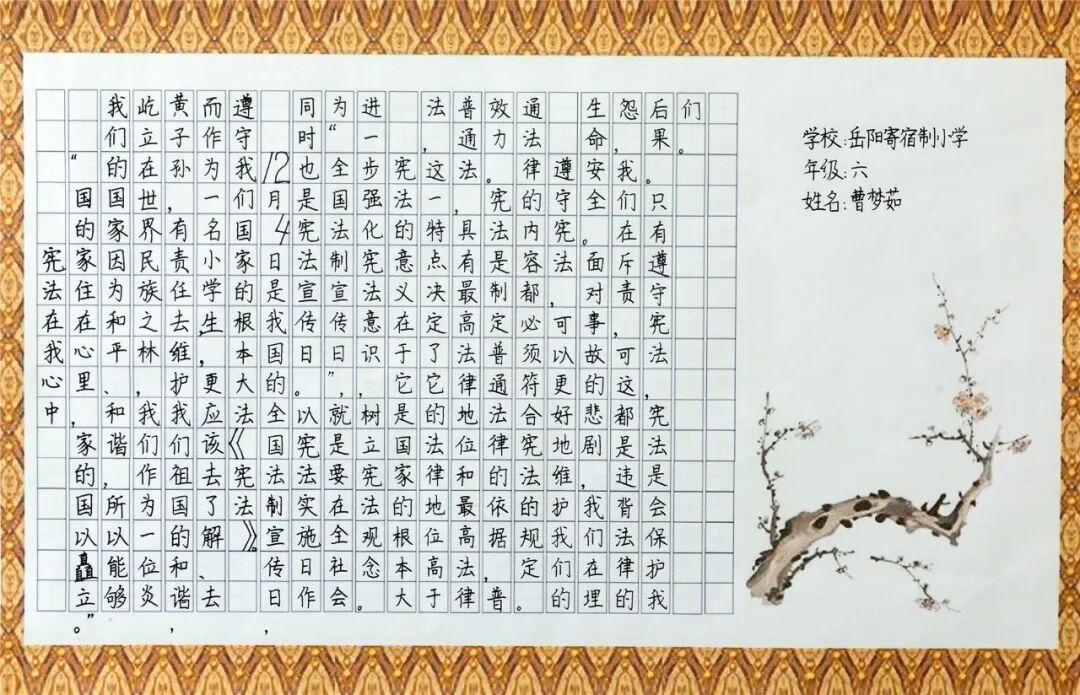 宪法在我心中
“国的家住在心里，家的国以矗立。”
我们的国家因为和平、和谐，所以能够
屹立在世界民族之林，我们作为一位炎
黄子孙，有责任去维护我们祖国的和谐，
而作为一名小学生，更应该去了解、去
遵守我们国家的根本大法《宪法》。
12月4日是我国的全国法制宣传日，
同时也是宪法宣传日。以宪法实施日作
为“全国法制宣传日”，就是要在全社会
进一步强化宪法意识，树立宪法观念。
宪法的意义在于它是国家的根本大
法，这一特点决定了它的法律地位高于
普通法。具有最高法律地位和最高法律
效力。宪法是制定普通法律的依据，普
通法律的内容都必须符合宪法的规定。
遵守宪法，可以更好地维护我们的
生命安全。面对事故的悲剧，我们在埋
怨，我们在斥责，可这都是违背法律的
后果。只有遵守宪法，宪法是会保护我
们。
学校:岳阳寄宿制小学
年级:六
姓名:曹梦茹